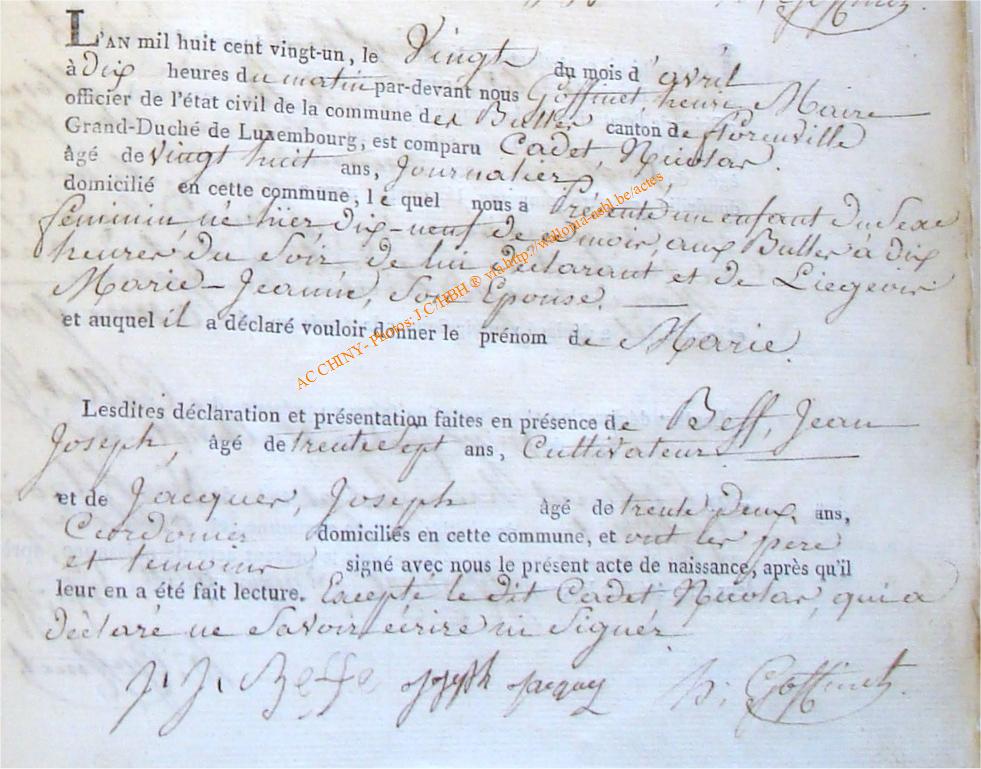 L'AN mil huit cent vingt-un, le Vingt du mois d'avril
à Dix heures du matin par-devant nous Goffinet, henri Maire
officier de l'état civil de la commune des Bulles canton de florenville
Grand-Duché de Luxembourg, est comparu Cadet, Nicolas.
âgé de vingt huit ans, Journalier,
domicilié en cette commune, le quel nous a Présenté un enfant du Sexe
féminin, né hier, dix-neuf de ce mois, aux Bulles à dix
heures du Soir de lui déclarant et de Liegeois
Marie-Jeanne, Son Epouse.
et auquel il a déclaré vouloir donner le prénom de Marie.
Lesdites déclaration et présentation faites en présence de Beff, Jean
Joseph, âgé de trente sept ans, Cultivateur
et de Jacques, Joseph âgé de trente Deux, ans,
Cordonier domiciliés en cette commune, et ont les pere
et temoins signé avec nous le présent acte de naissance, après qu'il
leur en a été fait lecture. Excepté le dit Cadet Nicolas, qui a
déclaré ne Savoir écrire ni Signer
J. J. Beffe joseph jacques h: Goffinet.
AC CHINY - Photos: J.C/HBH ® via http://wallonia-asbl.be/actes